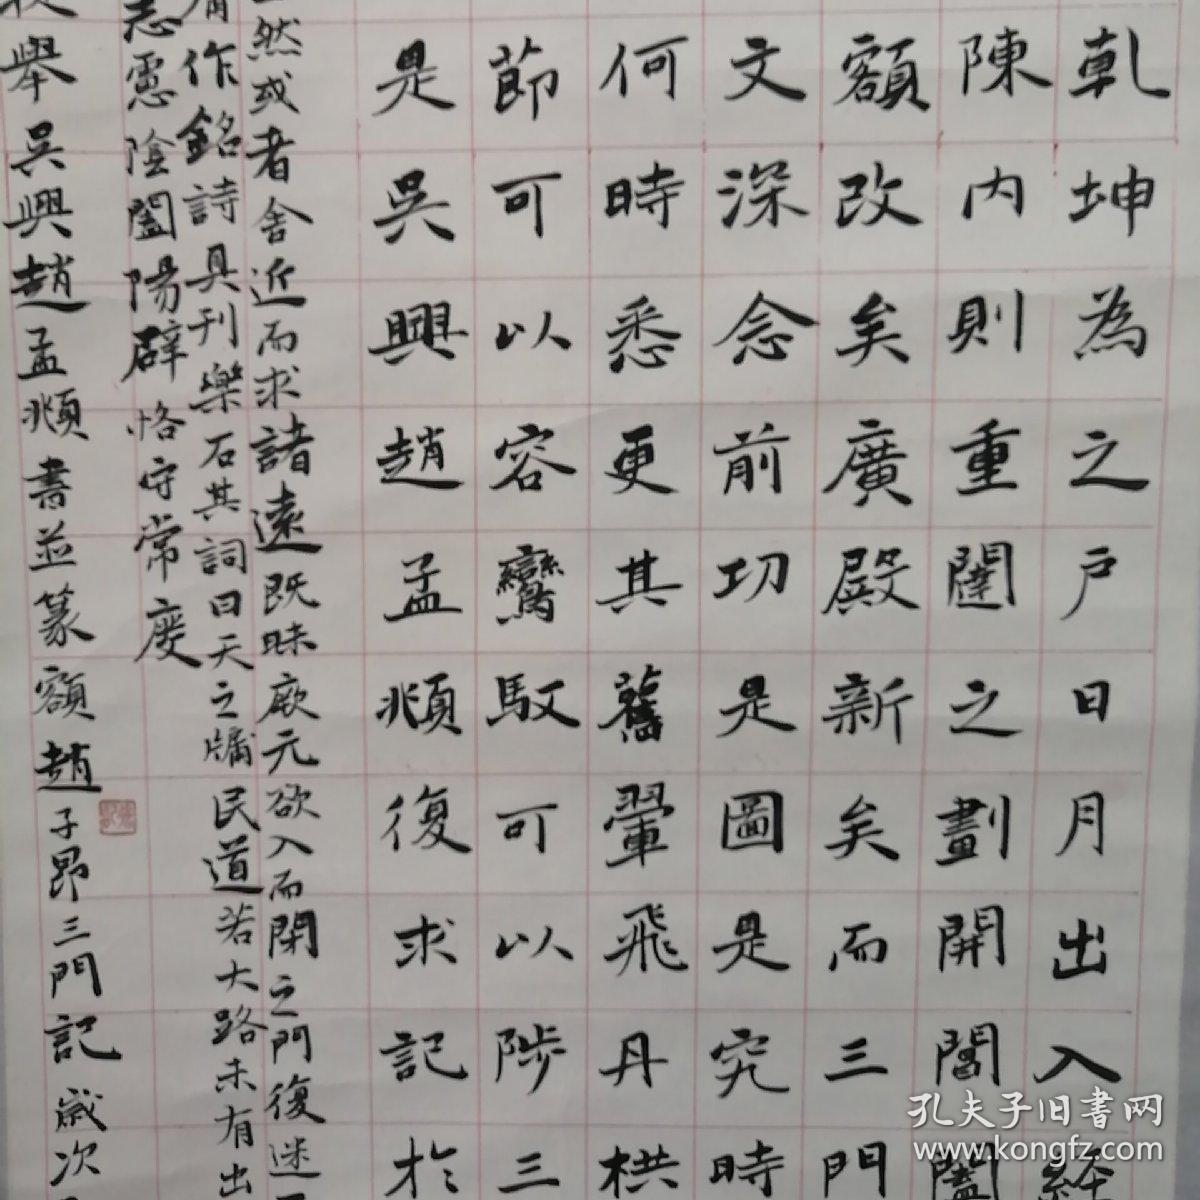 乾坤為之户日月出入經
陳内則重闥之劃開闔闔
額改矣廣殿新矣而三門
文深念前功是圖是究時
何時悉更其舊翬飛丹栱
節可以容鸞馭可以陟三
是吴興趙孟頫復求記於
然或者舍近而求諸遠既昧厥元欲入而閉之門復迷
作銘詩具刊樂石其詞曰天之牖民道若大路未有出
志慮陰闔陽辟恪守常度
舉吴興趙孟頫書並篆額趙子昂三門記歲次
孔夫子旧书网
www.kongfz.com